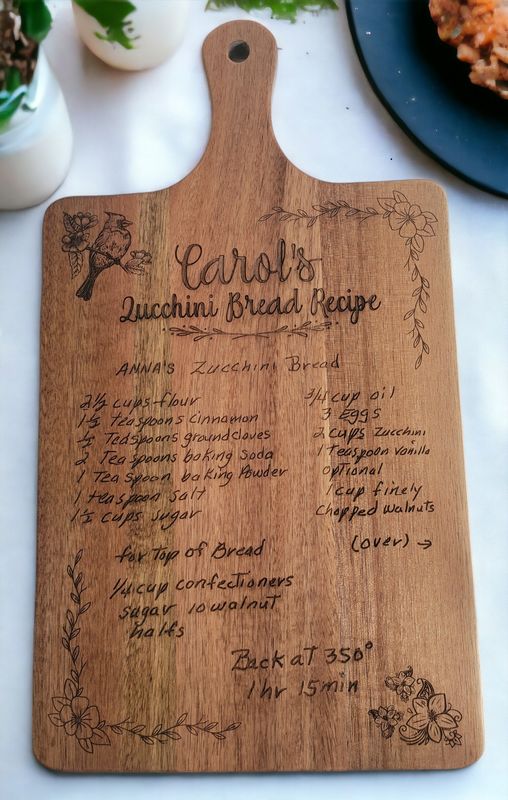 Carol's
Zucchini Bread Recipe
ANNA'S Zucchini Bread
2½ cups flour
1½ teaspoons Cinnamon
½ Teaspoons ground cloves
2 Tea spoons baking soda
1 Tea Spoon baking Powder
1 teaspoon salt
1½ cups sugar
3/4 cup oil
3 Eggs
2 cups Zucchini
1 Teaspoon Vanilla
optional
1 cup finely
chopped walnuts
(over) →
for Top of Bread
1/4 cup confectioners
sugar 10 walnut
halfs
Back at 350°
1 hr 15 min